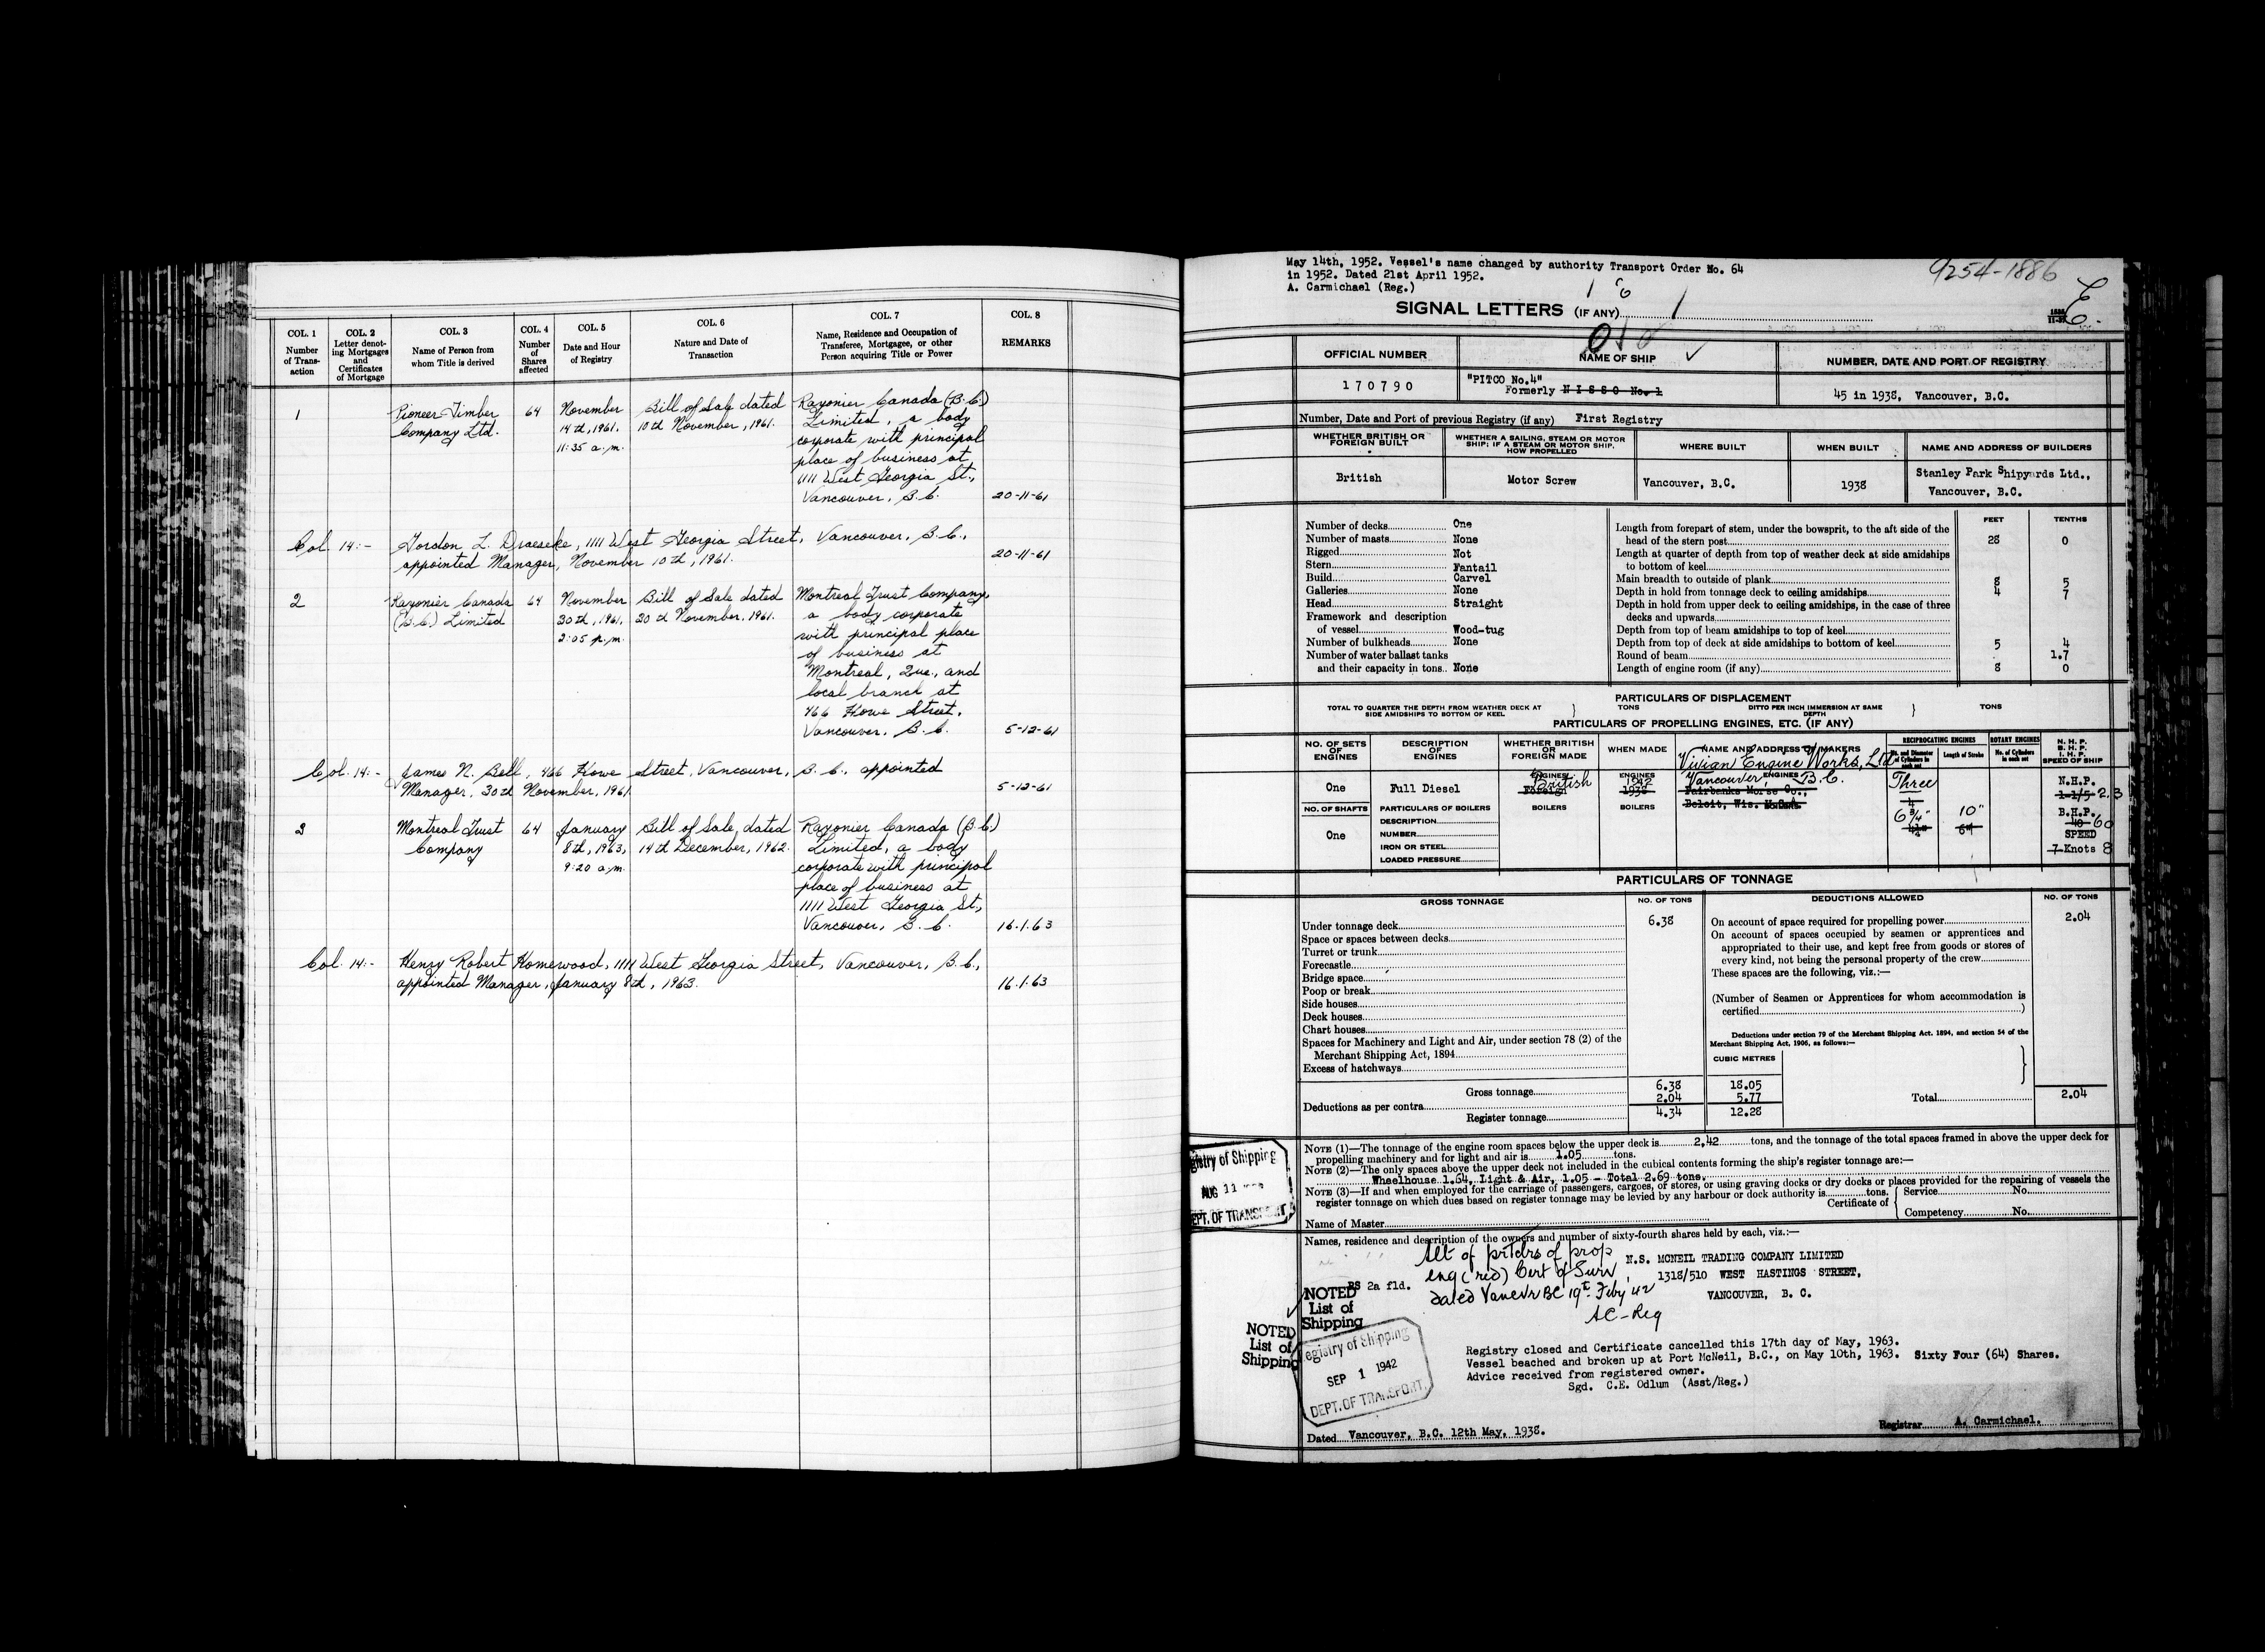 COL. 1 COL. 2 COL. 3 COL. 4 COL. 5 COL. 6 COL. 7 COL. 8
Number of Transaction
Letter denoting Mortgages and Certificates of Mortgage
Name of Person from whom Title is derived
Number of Shares affected
Date and Hour of Registry
Nature and Date of Transaction
Name, Residence and Occupation of Transferee, Mortgagee, or other Person acquiring Title or Power
REMARKS
1 Pioneer Timber 64 November Bill of Sale dated Rayonier Canada (B.C.)
Company Ltd. 14th, 1961. 10th November, 1961. Limited, a body
11:35 a.m. corporate with principal
place of business at
1111 West Georgia St.,
Vancouver, B.C. 20-11-61
Col. 14:- Gordon L. Draeseke, 1111 West Georgia Street, Vancouver, B.C.,
appointed Manager, November 10th, 1961. 20-11-61
2 Rayonier Canada 64 November Bill of Sale dated Montreal Trust Company,
(B.C.) Limited 30th, 1961, 30th November, 1961. a body corporate
2:05 p.m. with principal place
of business at
Montreal, Que., and
local branch at
466 Howe Street,
Vancouver, B.C. 5-12-61
Col. 14:- James N. Bell, 466 Howe Street, Vancouver, B.C., appointed
Manager, 30th November, 1961 5-12-61
3 Montreal Trust 64 January Bill of Sale, dated Rayonier Canada (B.C.)
Company 8th, 1963, 14th December, 1962. Limited, a body
9:20 a.m. corporate with principal
place of business at
1111 West Georgia St.,
Vancouver, B.C. 16.1.63
Col. 14:- Henry Robert Homewood, 1111 West Georgia Street, Vancouver, B.C.,
appointed Manager, January 8th, 1963. 16.1.63
May 14th, 1952. Vessel's name changed by authority Transport Order No. 64
in 1952. Dated 21st April 1952.
A. Carmichael (Reg.)
9254-1886
SIGNAL LETTERS (IF ANY)
OFFICIAL NUMBER NAME OF SHIP NUMBER, DATE AND PORT OF REGISTRY
170790 "PITCO No.4"
Formerly NISSO No.1 45 in 1938, Vancouver, B.C.
Number, Date and Port of previous Registry (if any) First Registry
WHETHER BRITISH OR FOREIGN BUILT
WHETHER A SAILING, STEAM OR MOTOR SHIP; IF A STEAM OR MOTOR SHIP, HOW PROPELLED
WHERE BUILT WHEN BUILT NAME AND ADDRESS OF BUILDERS
British Motor Screw Vancouver, B.C. 1938 Stanley Park Shipyards Ltd.,
Vancouver, B.C.
Number of decks One
Number of masts None
Rigged Not
Stern Fantail
Build Carvel
Galleries None
Head Straight
Framework and description
of vessel Wood-tug
Number of bulkheads None
Number of water ballast tanks
and their capacity in tons None
FEET TENTHS
Length from forepart of stem, under the bowsprit, to the aft side of the
head of the stern post 28 0
Length at quarter of depth from top of weather deck at side amidships
to bottom of keel
Main breadth to outside of plank 8 5
Depth in hold from tonnage deck to ceiling amidships 4 7
Depth in hold from upper deck to ceiling amidships, in the case of three
decks and upwards
Depth from top of beam amidships to top of keel
Depth from top of deck at side amidships to bottom of keel 5 4
Round of beam 1.7
Length of engine room (if any) 8 0
PARTICULARS OF DISPLACEMENT
TOTAL TO QUARTER THE DEPTH FROM WEATHER DECK AT SIDE AMIDSHIPS TO BOTTOM OF KEEL } TONS DITTO PER INCH IMMERSION AT SAME DEPTH } TONS
PARTICULARS OF PROPELLING ENGINES, ETC. (IF ANY)
NO. OF SETS OF ENGINES DESCRIPTION OF ENGINES WHETHER BRITISH OR FOREIGN MADE WHEN MADE NAME AND ADDRESS OF MAKERS
RECIPROCATING ENGINES ROTARY ENGINES
No. and Diameter of Cylinders in each set Length of Stroke No. of Cylinders in each set
N.H.P. B.H.P. I.H.P. SPEED OF SHIP
Vivian Engine Works, Ltd
Vancouver, B.C.
ENGINES ENGINES ENGINES
One Full Diesel British Foreign 1942 1938 Fairbanks Morse Co.,
Beloit, Wis. U.S.A.
Three 6 3/4" 10" 6"
N.H.P. 1-1/5 2.3
B.H.P. 40 60
SPEED
7 Knots 8
NO. OF SHAFTS PARTICULARS OF BOILERS BOILERS BOILERS
One DESCRIPTION
NUMBER
IRON OR STEEL
LOADED PRESSURE
PARTICULARS OF TONNAGE
GROSS TONNAGE NO. OF TONS DEDUCTIONS ALLOWED NO. OF TONS
Under tonnage deck 6.38
Space or spaces between decks
Turret or trunk
Forecastle
Bridge space
Poop or break
Side houses
Deck houses
Chart houses
Spaces for Machinery and Light and Air, under section 78 (2) of the
Merchant Shipping Act, 1894
Excess of hatchways
On account of space required for propelling power 2.04
On account of spaces occupied by seamen or apprentices and
appropriated to their use, and kept free from goods or stores of
every kind, not being the personal property of the crew
These spaces are the following, viz.:—
(Number of Seamen or Apprentices for whom accommodation is
certified )
Deductions under section 79 of the Merchant Shipping Act. 1894, and section 54 of the
Merchant Shipping Act, 1906, as follows:—
CUBIC METRES
Gross tonnage 6.38 18.05
Deductions as per contra 2.04 5.77 Total 2.04
Register tonnage 4.34 12.28
NOTE (1)—The tonnage of the engine room spaces below the upper deck is 2.42 tons, and the tonnage of the total spaces framed in above the upper deck for
propelling machinery and for light and air is 1.05 tons.
NOTE (2)—The only spaces above the upper deck not included in the cubical contents forming the ship's register tonnage are:—
Wheelhouse 1.64, Light & Air, 1.05 - Total 2.69 tons.
NOTE (3)—If and when employed for the carriage of passengers, cargoes, or stores, or using graving docks or dry docks or places provided for the repairing of vessels the
register tonnage on which dues based on register tonnage may be levied by any harbour or dock authority is tons.
Certificate of { Service No.
Competency No.
Name of Master
Names, residence and description of the owners and number of sixty-fourth shares held by each, viz.:—
Alt of prtclrs of prop
eng (red) Cert of Surv
dated Vancvr BC 19th Feby 42
AC-Reg
N.S. MCNEIL TRADING COMPANY LIMITED
1318/510 WEST HASTINGS STREET,
VANCOUVER, B. C.
RS 2a fld.
NOTED
List of
Shipping
NOTED
List of
Shipping
egistry of Shipping
AUG 11
EPT. OF TRANSPORT
egistry of Shipping
SEP 1 1942
DEPT. OF TRANSPORT.
Registry closed and Certificate cancelled this 17th day of May, 1963.
Vessel beached and broken up at Port McNeil, B.C., on May 10th, 1963. Sixty Four (64) Shares.
Advice received from registered owner.
Sgd. C.E. Odlum (Asst/Reg.)
Registrar A. Carmichael.
Dated Vancouver, B.C. 12th May, 1938.